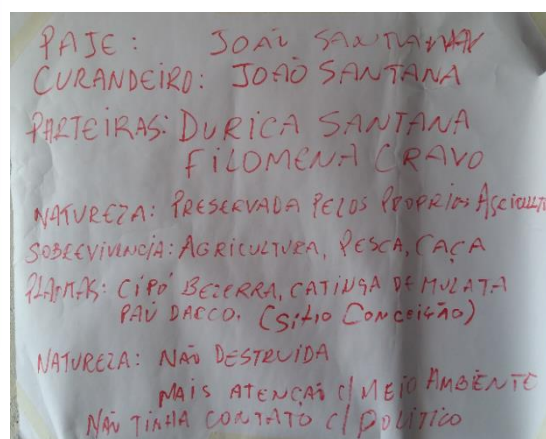 PAJE: JOAI SANTANA
CURANDEIRO: JOAO SANTANA
PARTEIRAS: DURICA SANTANA
FILOMENA CRAVO
NATUREZA: PRESERVADA PELOS PROPRIOS
SOBREVIVENCIA: AGRICULTURA, PESCA, CAÇA
PLANTAS: CIPÓ BEZERRA, CATINGA DE MULATA
PAU DACCO. (Sítio CONCEIÇÃO)
NATUREZA: NÃO DESTRUIDA
MAIS ATENÇAI C/ MEIO AMBIENTE
NÃO TINHA CONTATO C/ POLITICO